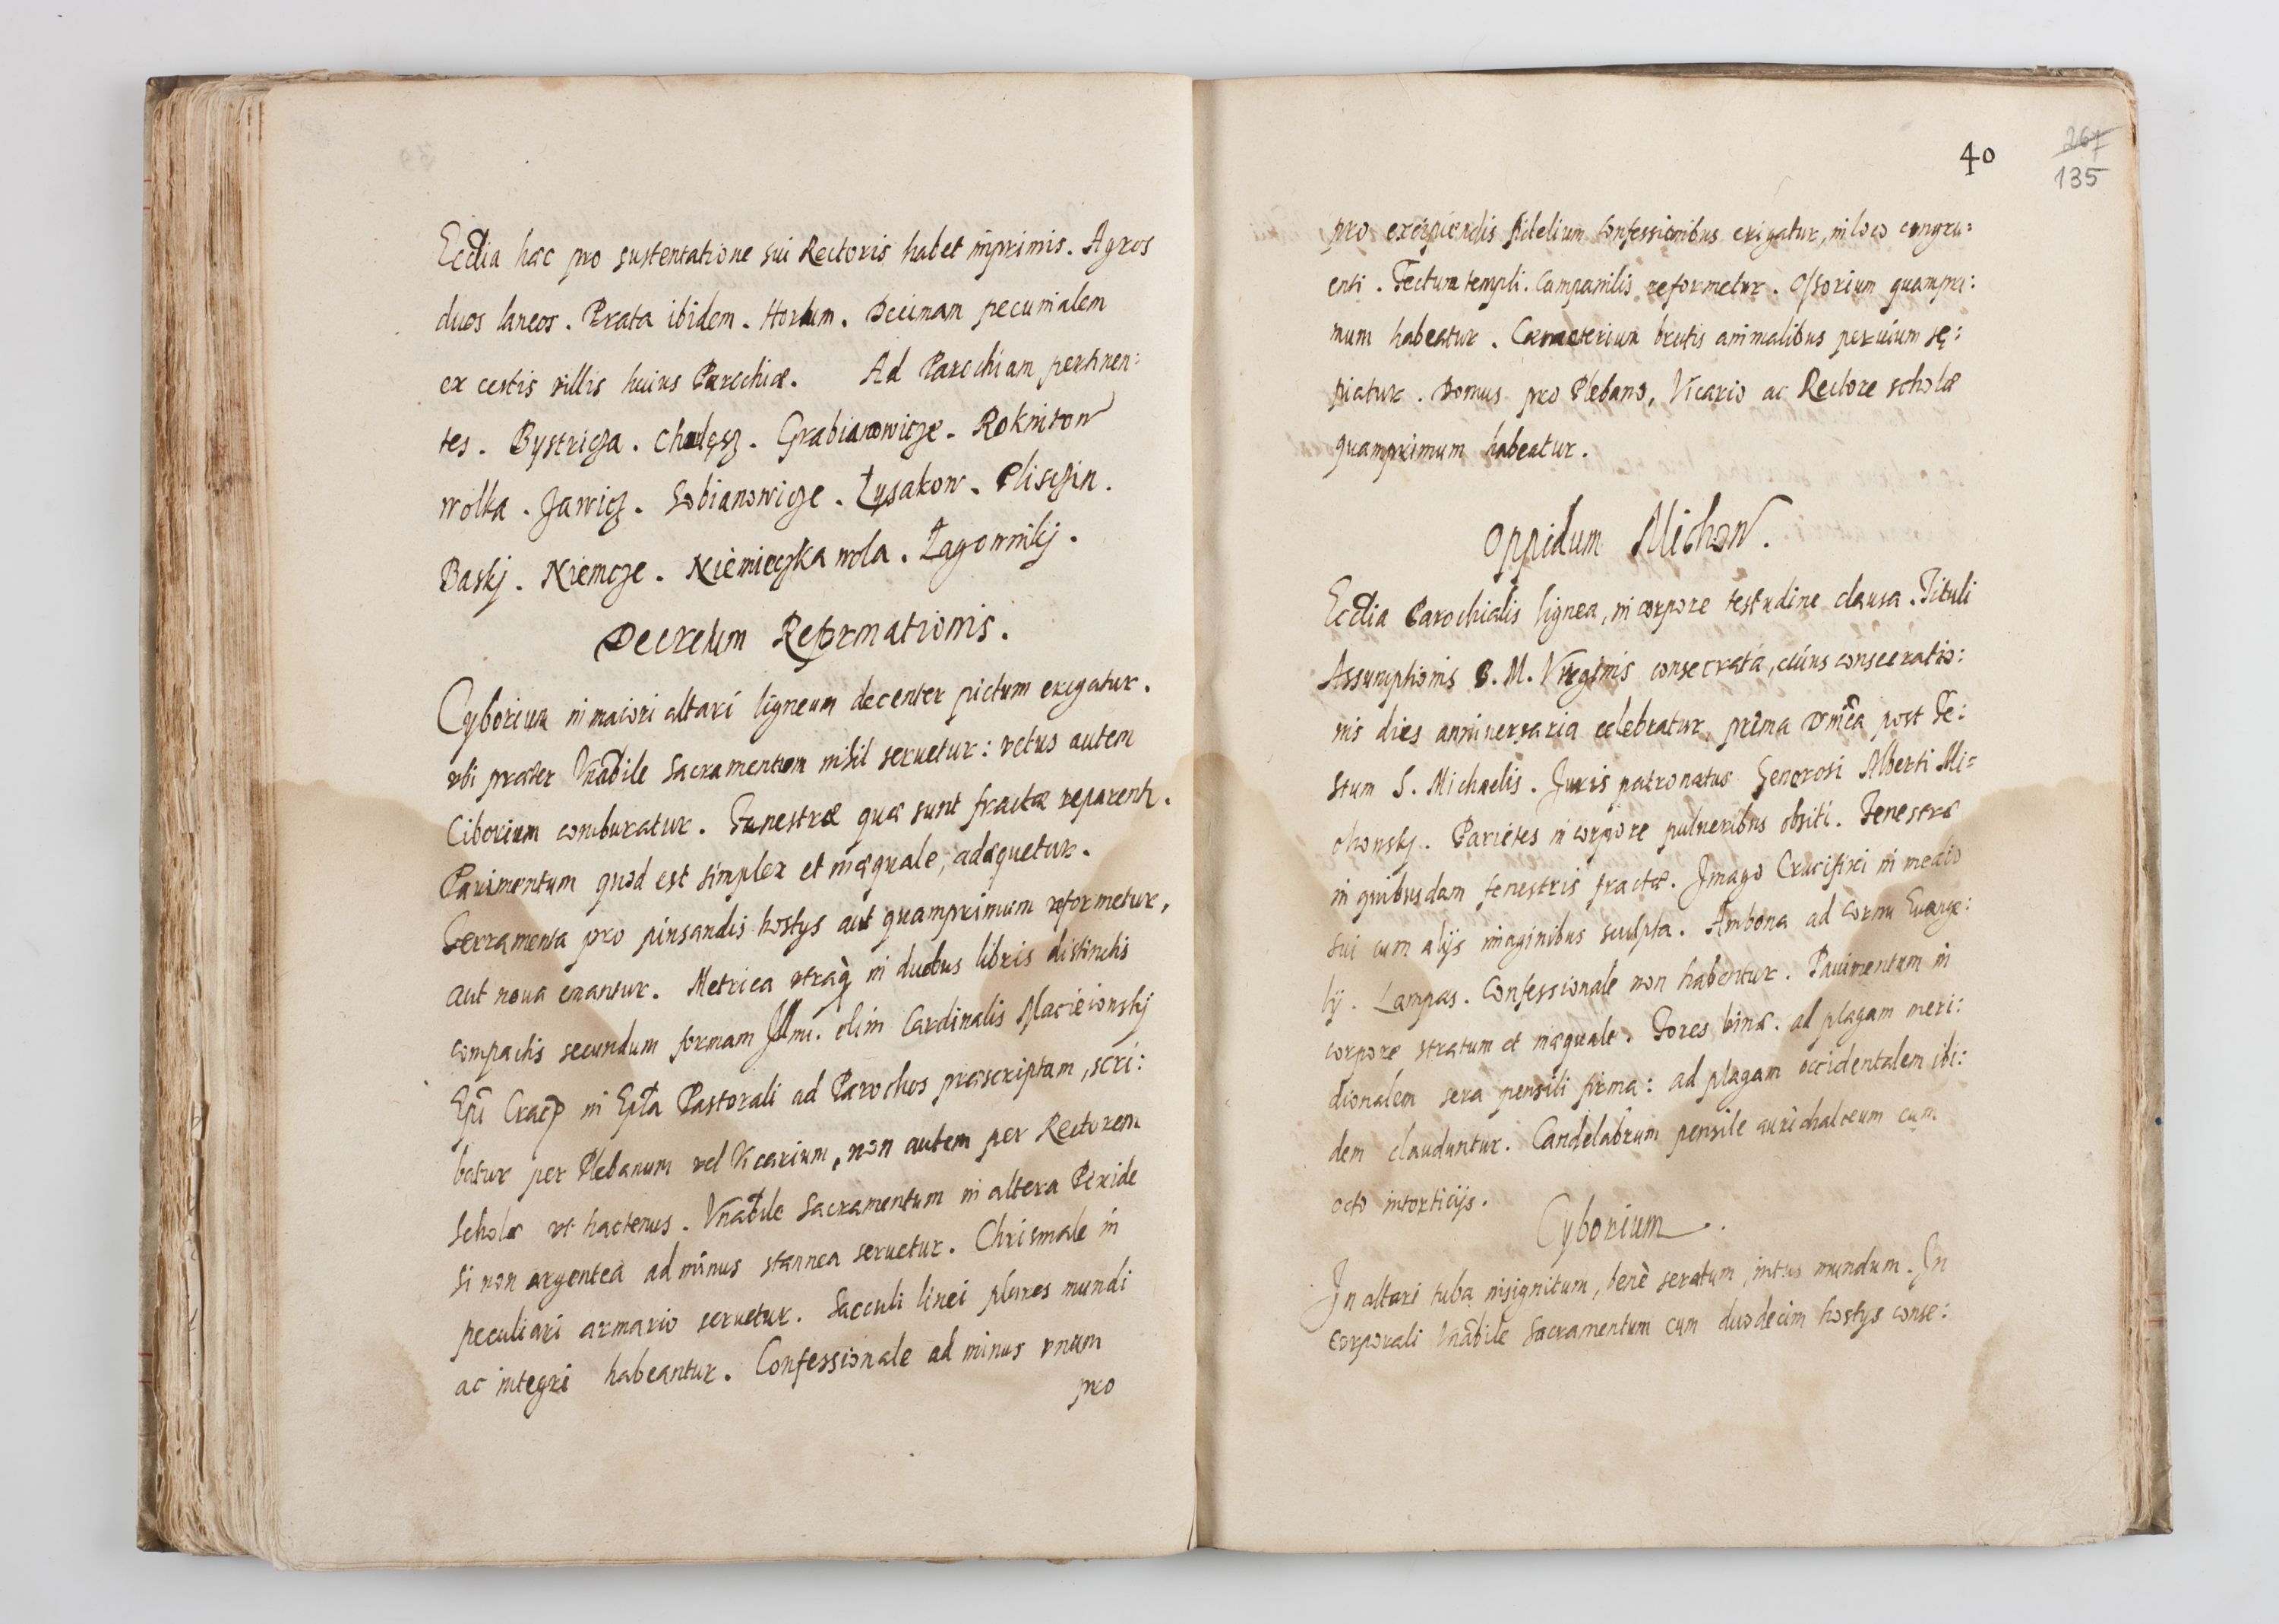 Eccl̃ia hæc pro sustentatione sui Rectoris habet inprimis. Agros
duos laneos. Prata ibidem. Hortum. Deciman pecunialem
ex certis villis huius Parochiæ. Ad Parochiam pertinen:
tes. Bystricza. Grabianowicze. Roknitow
wolka. Jawicz. Sobianowicze. Łysakow. Pliszczin.
Baskj. Niemcze. Niemieczka wola. Łagownikj.
Decretum Reformationis.
Cyborium in maiori altari ligneum decenter pictum erigatur.
vbi præter Vnãbile Sacramentum nihil seruetur: vetus autem
Ciborium comburatur. Fenestræ quæ sunt fractæ reparentr.
Pauimentum quod est simplex et inæquale, adæquetur.
Ferramenta pro pinsandis hostys aut quamprimum reformetur,
aut noua emantur. Metrica vtraq̃ in duobus libris distinctis
compactis secundum formam Illmi. olim Cardinalis Macieionskj
Epĩ Crac̃ in Ep̃la Pastorali ad Parochos præscriptam, scri:
batur per Plebanum vel Vicarium, non autem per Rectorem
Scholæ vt hactenus. Vnãbile Sacramentum in altera Pixide
si non argentea ad minus stannea seruetur. Chrismale in
peculiari armario seruetur. Sacculi linei plures mundi
ac integri habeantur. Confessionale ad minus vnum
pro
40
267
135
pro excipiendis fidelium confessionibus erigatur, in loco congru:
enti. Tectum templi. Campanilis reformetur. Ossorium quampri:
mum habeatur. Cæmeterium brutis animalibus peruium sę:
piatur. Domus pro Plebano, Vicario ac Rectore scholæ
quamprimum habeatur.
Oppidum Michow.
Eccl̃ia Parochialis lignea, in corpore testudine clausa. Tituli
Assumptionis B. M. Virginis consecrata, cuius consecratio:
nis dies anniuersaria celebratur prima Dnĩca post Fe:
stum S. Michaelis. Juris patronatus Generosi Alberti Mi=
chonskj. Parietes in corpore pulueribus obsiti. Fenestræ
in quibusdam fenestris fractæ. Jmago Crucifixi in medio
sui cum alijs imaginibus sculpta. Ambona ad cornu Euange:
lij. Lampas. Confessionale non habentur. Pauimentum in
corpore stratum et inæquale. Fores binæ. ad plagam meri:
dionalem sera pensili firma: ad plagam occidentalem ibi:
dem clauduntur. Candelabrum pensile aurichalceum cum
octo intorticijs.
Cyborium.
Jn altari tuba insignitum, benè seratum, intus mundum. Jn
corporali Vnãbile Sacramentum cum duodecim hostys conse: